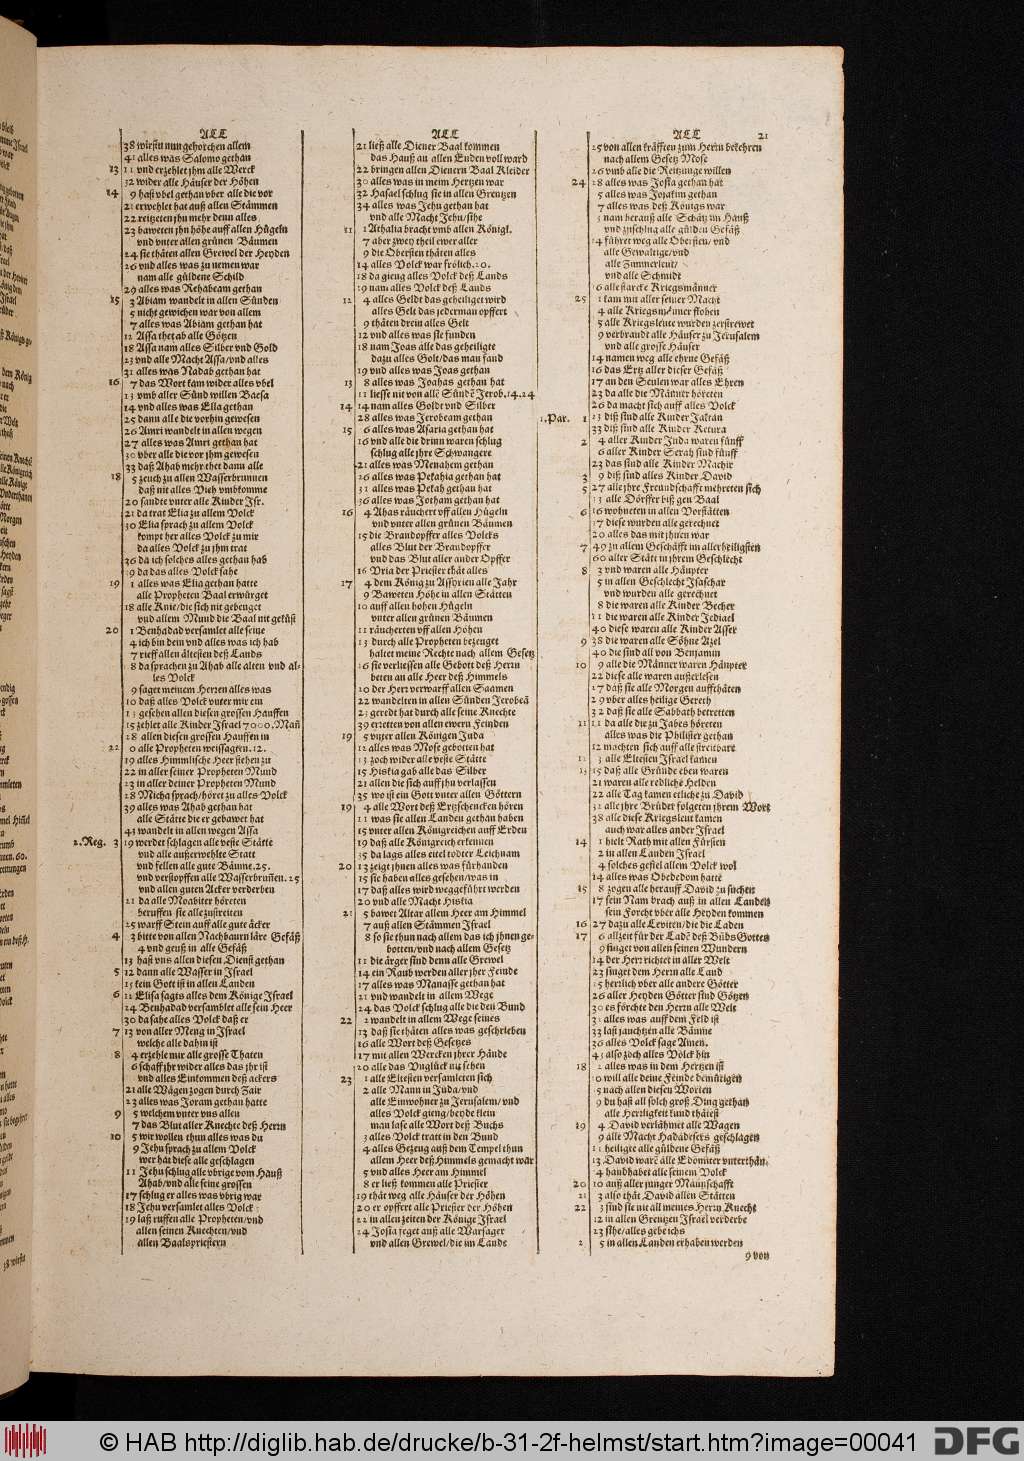 ALL
38 wirstu nun gehorchen allem
41 alles was Salomo gethan
13 11 vnd erzehlet jhm alle Werck
32 wider alle Häuser der Höhen
14 9 hast vbel gethan vber alle die vor
21 erwehlet hat auß allen Stämmen
22 reitzeten jhn mehr denn alles
23 baweten jhn höhe auff allen Hügeln
vnd vnter allen grünen Bäumen
24 sie thäten allen Grewel der Heyden
26 vnd alles was zu nemen war
nam alle güldene Schild
29 alles was Rehabeam gethan
15 3 Abiam wandele in allen Sünden
5 nicht gewichen war von allem
7 alles was Abiam gethan hat
12 Assa thet ab alle Götzen
18 Assa nam alles Silber vnd Gold
23 vnd alle Macht Assa/vnd alles
31 alles was Nadab gethan hat
16 7 das Wort kam wider alles vbel
13 vmb aller Sünd willen Baesa
14 vnd alles was Ella gethan
25 dann alle die vorhin gewesen
26 Amri wandelt in allen wegen
27 alles was Amri gethan hat
30 vber alle die vor jhm gewesen
33 daß Ahab mehr thet dann alle
18 5 zeuch zu allen Wasserbrunnen
daß nit alles Vieh vmbkomme
20 sandte vnter alle Kinder Isr.
21 da trat Elia zu allem Volck
30 Elia sprach zu allem Volck
kompt her alles Volck zu mir
da alles Volck zu jhm trat
36 da ich solches alles gethan hab
39 da das alles Volck sahe
19 1 alles was Elia gethan hatte
alle Propheten Baal erwürget
18 alle Knie/die sich nit gebeuget
vnd allem Mund die Baal nit geküst
20 1 Benhadad versamlet alle seine
4 ich bin dein vnd alles was ich hab
7 rieff allen ältesten deß Lands
8 da sprachen zu Ahab alle alten vnd alles
Volck
9 saget meinem Herren alles was
10 daß alles Volck vnter mir ein
13 gesehen allen diesen grossen Hauffen
15 zehlet alle Kinder Israel 7000. Mañ
28 allen diesen grossen Hauffen in
22 10 alle Propheten weissagten. 12.
19 alles Himmlische Heer stehen zu
22 in aller seiner Propheten Mund
23 in aller deiner Propheten Mund
28 Micha sprach/höret zu alles Volck
39 alles was Ahab gethan hat
alle Stätte die er gebawet hat
43 wandelt in allen wegen Assa
2.Reg. 3 19 werdet schlagen alle veste Stätte
vnd alle außerwehlte Statt
vnd fellen alle gute Bäume. 25.
vnd verstopffen alle Wasserbruñen. 25
vnd allen guten Acker verderben
21 da alle Moabiter höreten
beruffen sie alle zustreiten
25 warff Stein auff alle gute äcker
4 3 bitte von allen Nachbaurn läre Gefäß
4 vnd geuß in alle Gefäß
13 hast vns allen diesen Dienst gethan
5 12 dann alle Wasser in Israel
15 kein Gott ist in allen Landen
6 12 Elisa sagts alles dem Könige Israel
24 Benhadad versamblet alle sein Heer
30 da sahe alles Volck daß er
7 13 von aller Meng in Israel
welche alle dahin ist
8 4 erzehle mir alle grosse Thaten
6 schaff jhr wider alles das jhr ist
vnd alles Einkommen deß ackers
21 alle Wägen zogen durch Zair
23 alles was Joram gethan hatte
9 5 welchem vnter vns allen
7 das Blut aller Knechte deß Herrn
10 5 wir wollen thun alles was du
9 Jehu sprach zu allem Volck
wer hat diese alle geschlagen
11 Jehu schlug alle vbrige vom Hauß
Ahab/vnd alle seine grossen
17 schlug er alles was vbrig war
18 Jehu versamlet alles Volck
19 laß ruffen alle Propheten/vnd
allen seinen Knechten/vnd
allen Baalspriestern
ALL
21 ließ alle Diener Baal kommen
das Hauß an allen Enden voll ward
22 bringen allen Dienern Baal Kleider
30 alles was in meim Hertzen war
32 Hasael schlug sie in allen Grentzen
34 alles was Jehu gethan hat
vnd alle Macht Jehu/sihe
11 1 Athalia bracht vmb allen Königl.
7 aber zwey theil ewer aller
9 die Obersten thäten alles
14 alles Volck war frölich. 20.
18 da gieng alles Volck deß Lands
19 nam alles Volck deß Lands
12 4 alles Geldt das geheiliget wird
alles Gelt das jederman opffert
9 thäten drein alles Gelt
12 vnd alles was sie funden
18 nam Joas alle das geheiligte
dazu alles Golt/das man fand
19 vnd alles was Joas gethan
13 8 alles was Joahas gethan hat
11 liesse nit von allē Sündē Jerob. 14.24
14 14 nam alles Goldt vnd Silber
28 alles was Jerobeam gethan
15 6 alles was Asaria gethan hat
16 vnd alle die drinn waren schlug
schlug alle jhre Schwangere
21 alles was Menahem gethan
26 alles was Pekahia gethan hat
31 alles was Pekah gethan hat
36 alles was Jotham gethan hat
16 4 Ahas räuchert vff allen Hügeln
vnd vnter allen grünen Bäumen
15 die Brandopffer alles Volcks
alles Blut der Brandopffer
vnd das Blut aller ander Opffer
16 Vria der Priester thät alles
17 4 dem König zu Assyrien alle Jahr
9 Baweten Höhe in allen Stätten
10 auff allen hohen Hügeln
vnter allen grünen Bäumen
11 räucherten vff allen Höhen
13 durch alle Propheten bezeuget
haltet meine Rechte nach allem Gesetz
16 sie verliessen alle Gebott deß Herrn
beten an alle Heer deß Himmels
20 der Herr verwarff allen Saamen
22 wandelten in allen Sünden Jerobeā
23 geredt hat durch alle seine Knechte
39 erretten von allen ewern Feinden
19 5 vnter allen Königen Juda
12 alles was Mose gebotten hat
13 zoch wider alle veste Stätte
15 Hiskia gab alle das Silber
21 allen die sich auff jhn verlassen
35 wo ist ein Gott vnter allen Göttern
19 4 alle Wort deß Ertzschencken hören
11 was sie allen Landen gethan haben
15 vnter allen Königreichen auff Erden
19 daß alle Königreich erkennen
35 da lags alles eitel todter Leichnam
20 13 zeigt jhnen alles was fürhanden
15 sie haben alles gesehen/was in
17 daß alles wird weggeführt werden
20 vnd alle Macht Hiskia
21 5 bawet Altar allem Heer am Himmel
7 auß allen Stämmen Israel
8 so sie thun nach allem das ich jhnen gebotten/vnd
nach allem Gesetz
11 die ärger sind denn alle Grewel
14 ein Raub werden aller jher Feinde
17 alles was Manasse gethan hat
21 vnd wandelt in allem Wege
24 das Volck schlug alle die den Bund
22 2 wandelt in allem Wege seines
13 daß sie thäten alles was geschrieben
16 alle Wort deß Gesetzes
17 mit allen Wercken jhrer Hände
20 alle das Vnglück nit sehen
23 1 alle Eltesten versamleten sich
2 alle Mann in Juda/vnd
alle Einwohner zu Jerusalem/vnd
alles Volck gieng/beyde klein
man lase alle Wort deß Buchs
3 alles Volck tratt in den Bund
4 alles Gezeug auß dem Tempel thun
allem Heer deß Himmels gemacht war
5 vnd alles Heer am Himmel
8 er ließ kommen alle Priester
19 thät weg alle Häuser der Höhen
20 er opffert alle Priester der Höhen
22 in allen zeiten der Könige Israel
24 Josia feget auß alle Warsager
vnd allen Grewel/die im Lande
ALL 21
25 von allen kräfften zum Herrn bekehren
nach allem Gesetz Mose
26 vmb alle die Reitzunge willen
24 28 alles was Josia gethan hat
5 alles was Jojakim gethan
7 alles was deß Königs war
13 nam herauß alle Schätz im Hauß
vnd zuschlug alle gülden Gefäß
14 führet weg alle Obersten/vnd
alle Gewaltige/vnd
alle Zimmerleut/
vnd alle Schmidt
16 alle starcke Kriegsmänner
25 1 kam mit aller seiner Macht
4 alle Kriegsmänner flohen
5 alle Kriegsleute wurden zerstrewet
9 verbrandt alle Häuser zu Jerusalem
vnd alle grosse Häuser
14 namen weg alle ehrne Gefäß
16 das Ertz aller dieser Gefäß
17 an den Seulen war alles Ehren
23 da alle die Männer höreten
26 da macht sich auff alles Volck
1.Par. 1 23 diß sind alle Kinder Jaktan
33 diß sind alle Kinder Ketura
2 4 aller Kinder Juda waren fünff
6 aller Kinder Serah sind fünff
23 das sind alle Kinder Machir
3 9 diß sind alles Kinder David
5 27 alle jhre Freundschafft mehreten sich
33 alle Dörffer biß gen Baal
6 16 wohneten in allen Vorstätten
17 diese wurden alle gerechnet
20 alles das mit jhnen war
7 49 zu allem Geschäfft im allerheiligsten
60 aller Stätt in jhrem Geschlecht
8 3 vnd waren alle Häupter
5 in allen Geschlecht Isaschar
vnd wurden alle gerechnet
8 die waren alle Kinder Becher
11 die waren alle Kinder Jediael
40 diese waren alle Kinder Asser
9 38 die waren alle Söhne Azel
40 die sind all von Benjamin
10 9 alle die Männer waren Häupter
22 diese alle waren außerlesen
27 daß sie alle Morgen auffthäten
29 vber alles heilige Gereth
32 daß sie alle Sabbath bereitten
11 11 da alle die zu Jabes höreten
alles was die Philister gethan
12 machten sich auff alle streitbare
12 3 alle Eltesten Israel kamen
13 15 daß alle Gründe eben waren
21 waren alle redliche Helden
22 alle Tag kamen etliche zu David
32 alle jhre Brüder folgeten jhrem Wort
38 alle diese Kriegsleut kamen
auch war alles ander Israel
14 1 hielt Rath mit allen Fürsten
2 in allen Landen Israel
4 solches gefiel allem Volck wol
14 alles was Obededom hatte
15 8 zogen alle herauff David zu suchen
17 sein Nam brach auß in allen Landen
sein Forcht vber alle Heyden kommen
16 27 dazu alle Leviten/die die Laden
17 6 allzeit für der Ladē deß Būds Gottes
9 singet von allen seinen Wundern
14 der Herr richtet in aller Welt
23 singet dem Herrn alle Land
25 herrlich vber alle andere Götter
26 aller Heyden Götter sind Götzen
30 es förchte den Herrn alle Welt
32 alles was auff dem Feld ist
33 laß jauchtzen alle Bäume
36 alles Volck sage Amen.
43 also zoch alles Volck hin
18 2 alles was in dem Hertzen ist
10 will alle deine Feinde demütigen
15 nach allen diesen Worten
9 du hast all solch groß Ding gethan
alle Herrligkeit kund thätest
19 4 David verlähmet alle Wagen
9 alle Macht Hadadesers geschlagen
11 heiligte alle güldene Gefäß
13 David warē alle Edomiter vnterthän.
14 handhabet alle seinem Volck
20 10 auß aller junger Mannschafft
21 3 also thät David allen Stätten
22 3 sind sie nit all meines Herrn Knecht
12 in allen Grentzen Israel verderbe
23 sihe/alles gebe ichs
2 5 in allen Landen erhaben werden
9 von
© HAB http://diglib.hab.de/drucke/b-31-2f-helmst/start.htm?image=00041
DFG